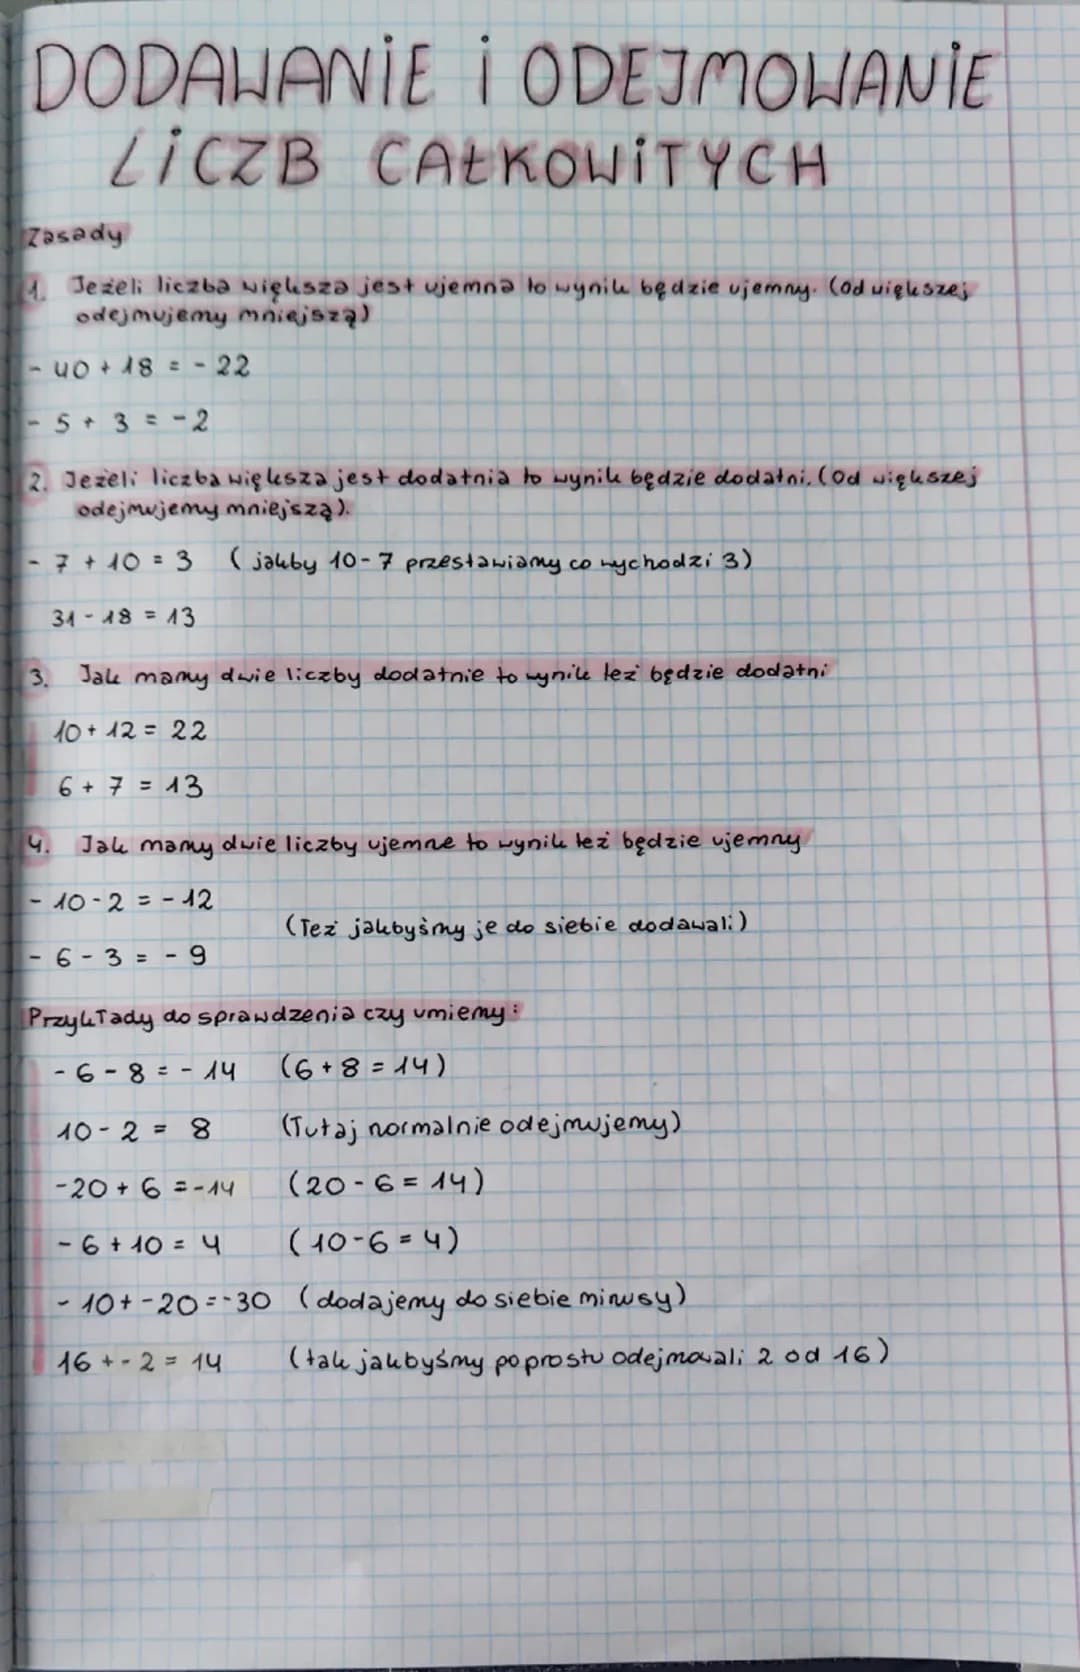 DODAWANIE i ODEJMOWANIE
LICZB CAŁKOWITYCH
Zasady
1. Jeżeli liczba większa jest ujemna to wynik będzie ujemny. (Od większej
odejmujemy mniejszą)
- 40 + 18 = - 22
- 5 + 3 = - 2
2. Jeżeli liczba większa jest dodatnia to wynik będzie dodatni. (Od większej
odejmujemy mniejszą).
- 7 + 10 = 3 (jakby 10 - 7 przestawiamy co wychodzi 3)
31 - 18 = 13
3. Jak mamy dwie liczby dodatnie to wynik też będzie dodatni
10 + 12 = 22
6 + 7 = 13
4. Jak mamy dwie liczby ujemne to wynik też będzie ujemny
- 10 - 2 = - 12
(Też jakbyśmy je do siebie dodawali)
- 6 - 3 = - 9
Przykłady do sprawdzenia czy umiemy:
- 6 - 8 = - 14 (6 + 8 = 14)
10 - 2 = 8 (Tutaj normalnie odejmujemy)
-20 + 6 = -14 (20 - 6 = 14)
- 6 + 10 = 4 (10 - 6 = 4)
- 10 + -20 = -30 (dodajemy do siebie minusy)
16 + - 2 = 14 (tak jakbyśmy poprostu odejmowali 2 od 16)